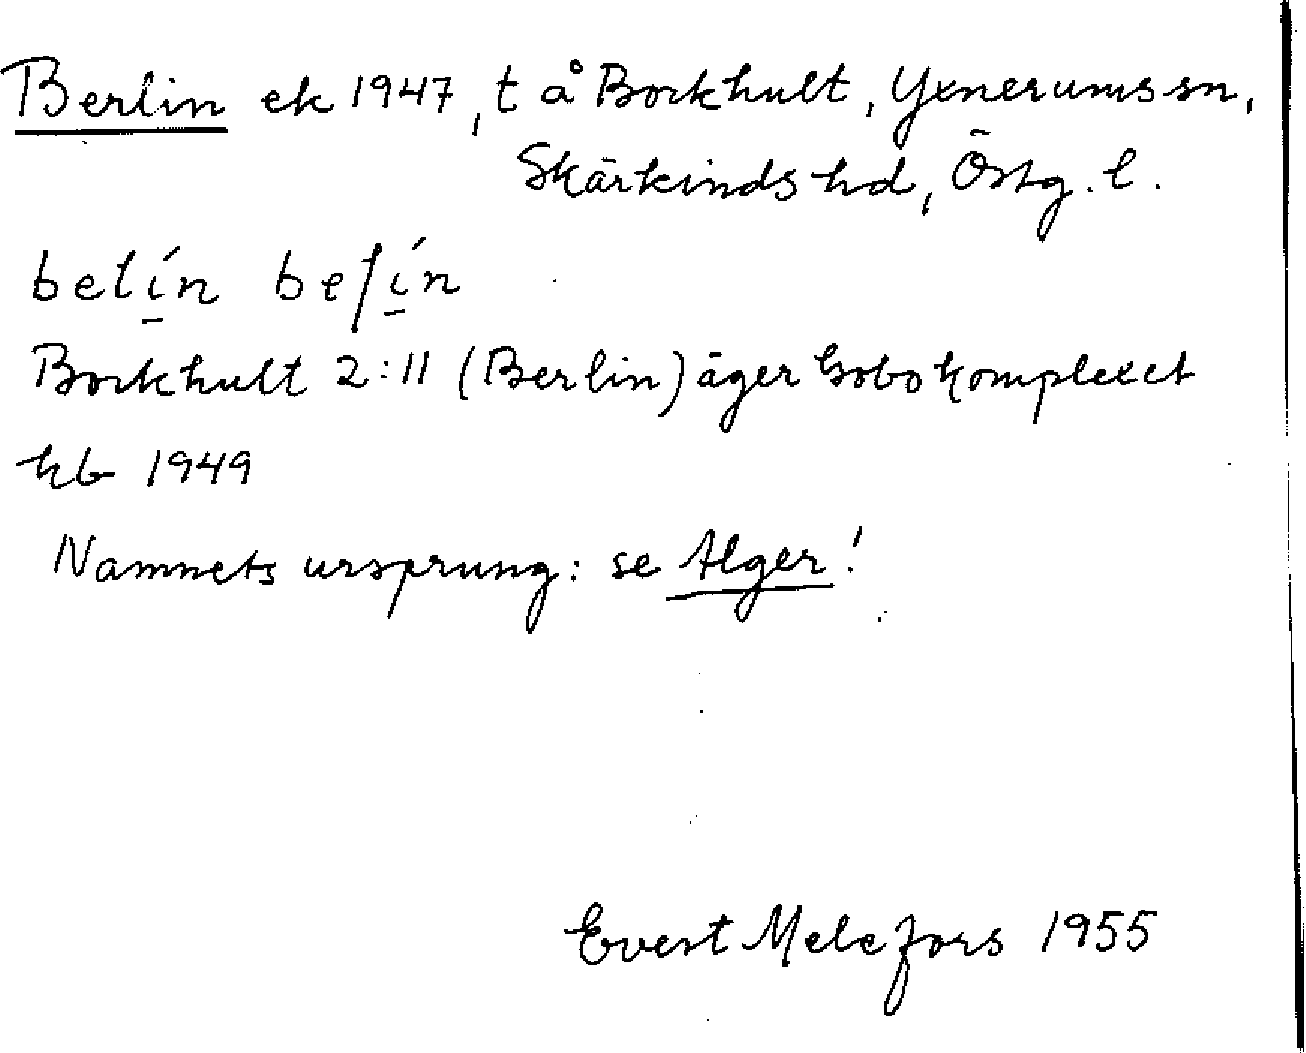 Berlin ek 1947, t å Borkhult, Yxnerums sn,
Skärkinds hd, Östg. l.
belín beſín
Borkhult 2:11 (Berlin) äger bobokomplexet
kb 1949
Namnets ursprung: se Alger!
Evert Melefors 1955